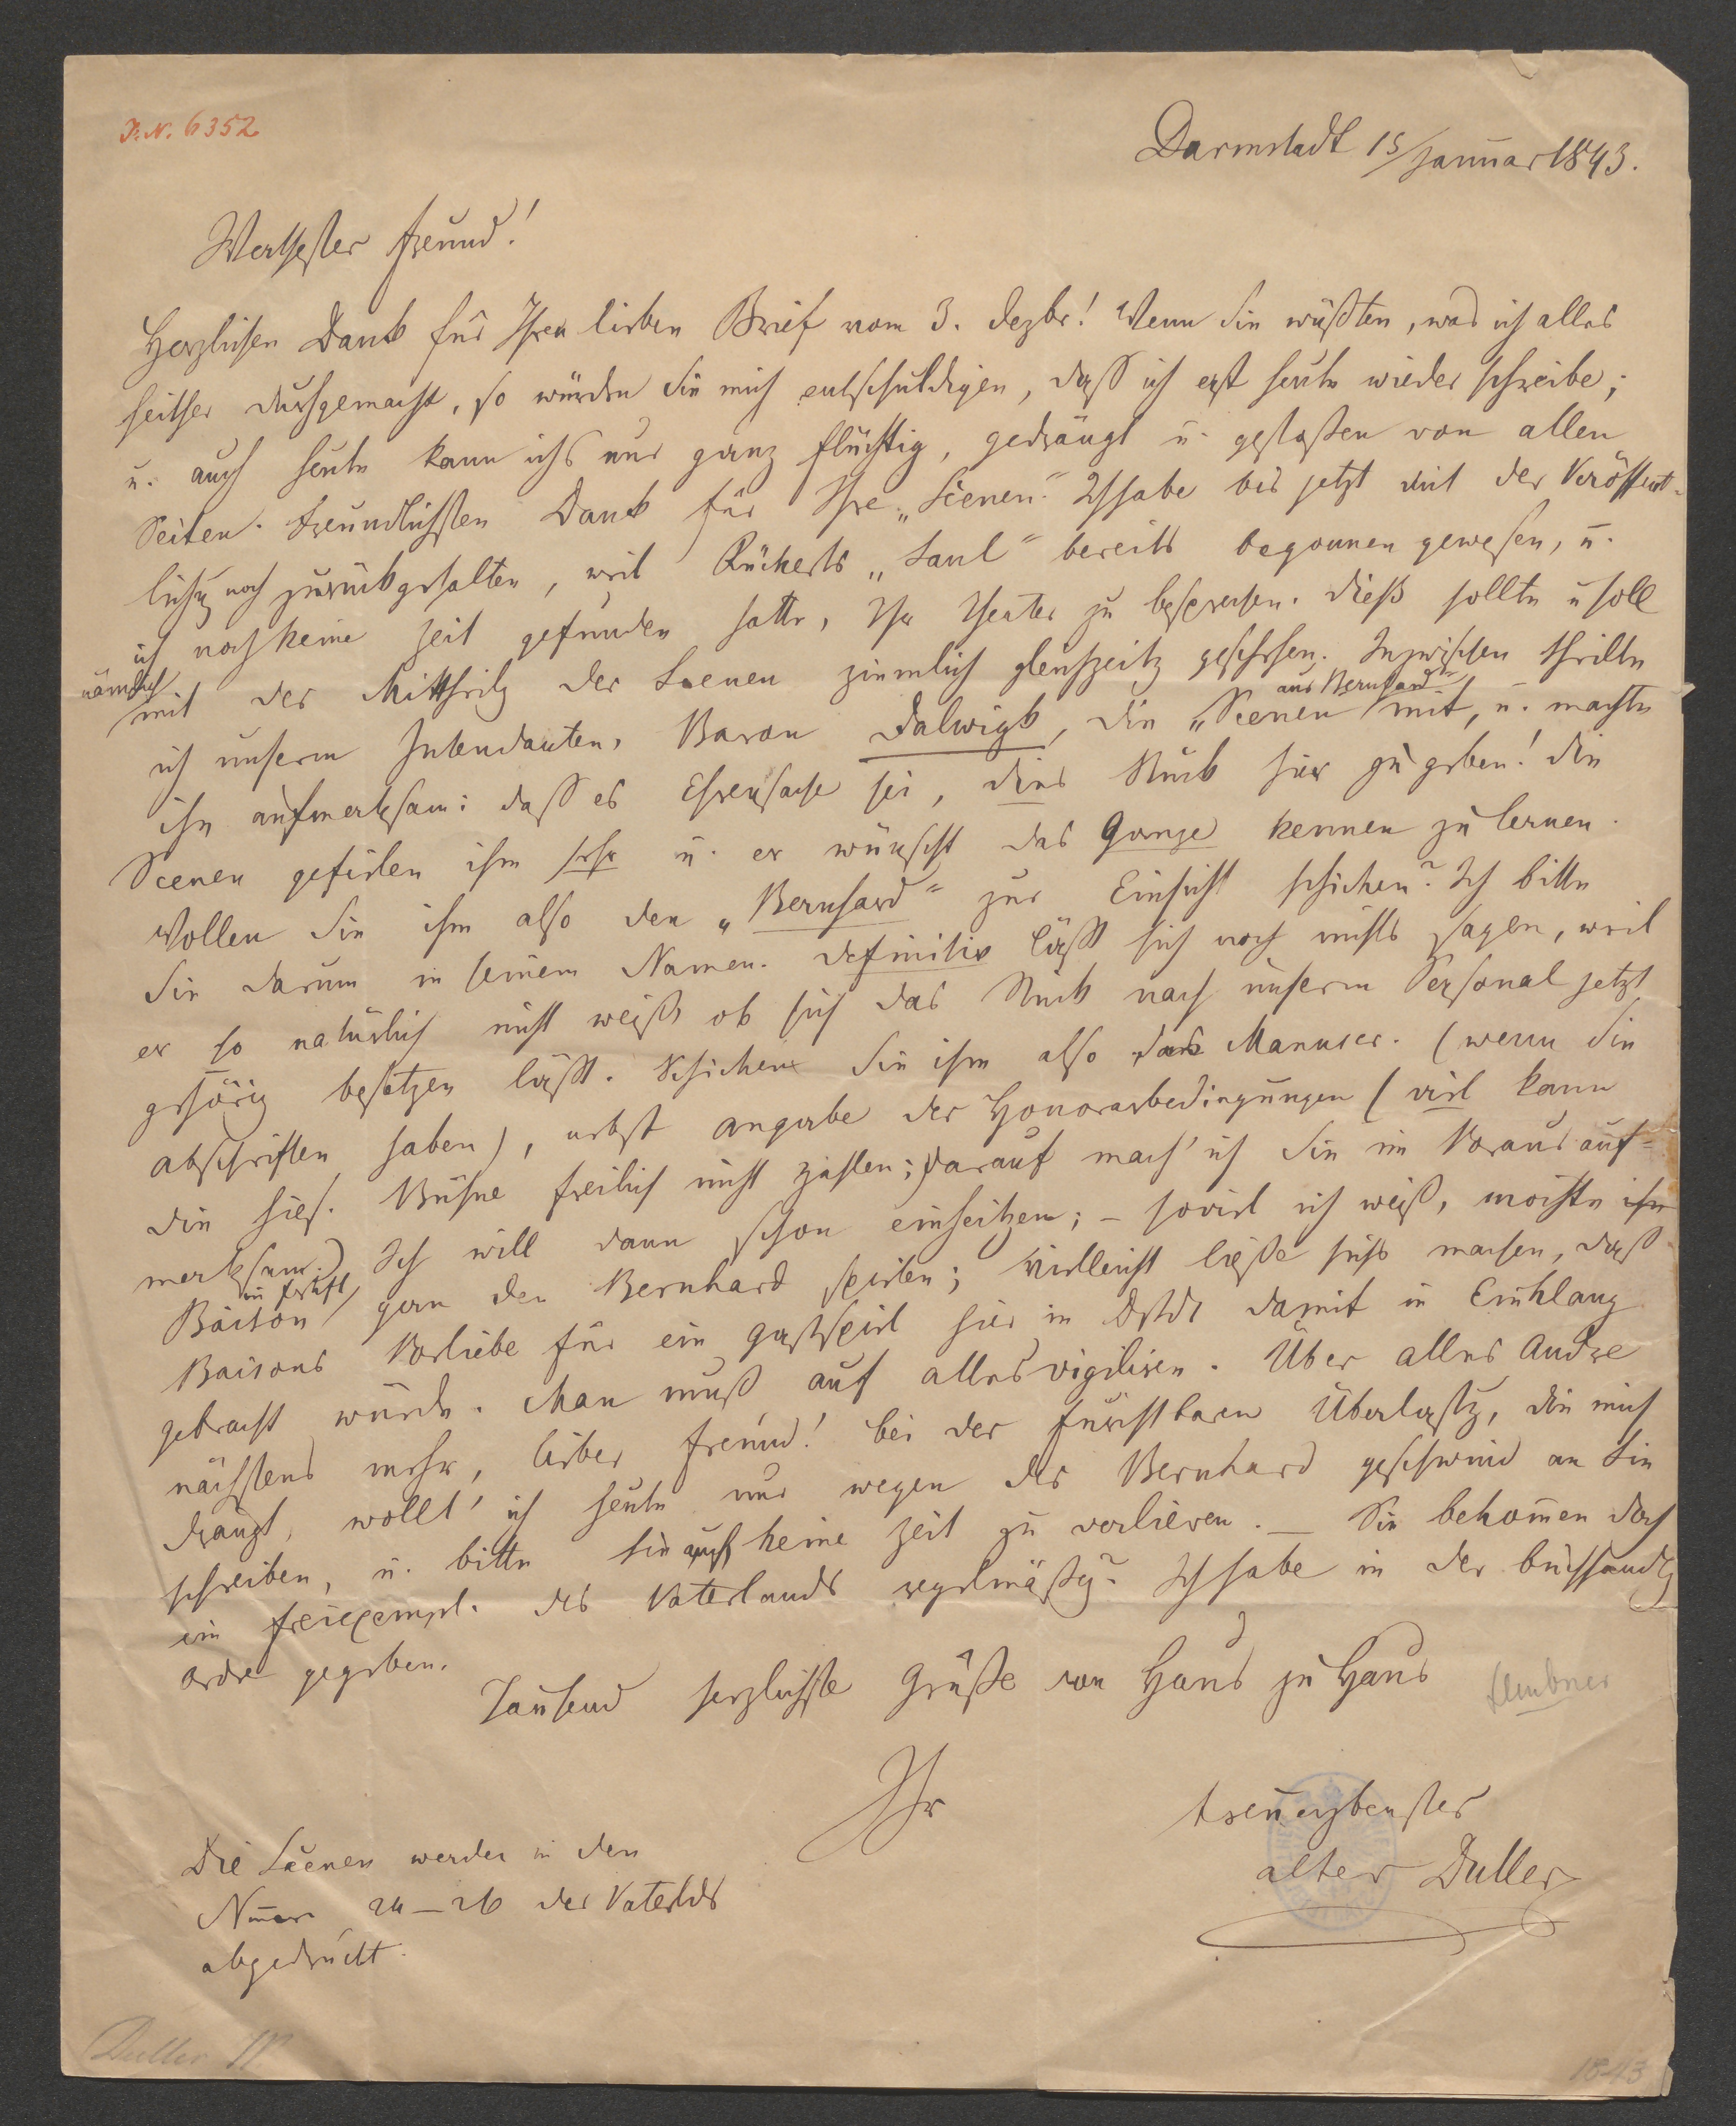 J. N. 6352
Darmstadt 15/Januar 1843.
Werthester Freund!
Herzlichen Dank für Ihren lieben Brief vom 3. Dezbr! Wenn Sie wüßten, was ich alles
seither durchgemacht, so würden Sie mich entschuldigen, daß ich erst heute wieder schreibe;
u. auch heute kann ichs nur ganz flüchtig, gedrängt u. gestoßen von allen
Seiten. Freundlichsten Dank für Ihre „Scenen." Ich habe bis jetzt mit der Veröffent-
lichg noch zurückgehalten, weil Rückerts „Saul" bereits begonnen gewesen, u.
ich noch keine Zeit gefunden hatte, Ihr Theater zu besprechen. Dieß sollte u soll
nämlich
mit der Mittheilg der Scenen ziemlich gleichzeitg geschehen. Inzwischen theilte
ich unserm Intendanten, Baron Dalwigk, die „Scenen aus Bernhard" mit, u. machte
ihn aufmerksam: daß es Ehrensache sei, dies Stück hier zu geben! Die
Scenen gefielen ihm sehr u. er wünscht das Ganze kennen zu lernen.
Wollen Sie ihm also den „Bernhard" zur Einsicht schicken? Ich bitte
Sie darum in seinem Namen. Definitiv läßt sich noch nichts sagen, weil
er so natürlich nicht weiß ob sich das Stück nach unserm Personal jetzt
gehörig besetzen läßt. Schicken Sie ihm also das Manuscr. (wenn Sie
Abschriften haben), nebst Angabe der Honorarbedingungen (viel kann
die hies. Bühne freilich nicht zahlen; darauf mach' ich Sie im Voraus auf-
merksam.) Ich will dann schon einheitzen; – soviel ich weiß, möchte ihn
Baison im Herbst gern den Bernhard spielen; vielleicht ließe sichs machen, daß
Baisons Vorliebe für ein Gastspiel hier in Dstdt damit in Einklang
gebracht würde. Man muß auf alles vigiliren. Über alles Andre
nächstens mehr, lieber Freund! bei der furchtbaren Überlastg, die mich
drängt, wollt' ich heute nur wegen des Bernhard geschwind an Sie
schreiben, u. bitte Sie auch keine Zeit zu verlieren. – Sie bekommen doch
ein Freiexempl. des Vaterlands regelmäßig? Ich habe in der Buchhandlg
Ordre gegeben.
Tausend herzlichste Grüße von Haus zu Haus
Ihr
treuergebenster
alter Duller
Die Scenen werden in den
Nmern 24–26 des Vaterlds
abgedruckt.
Duller
1843